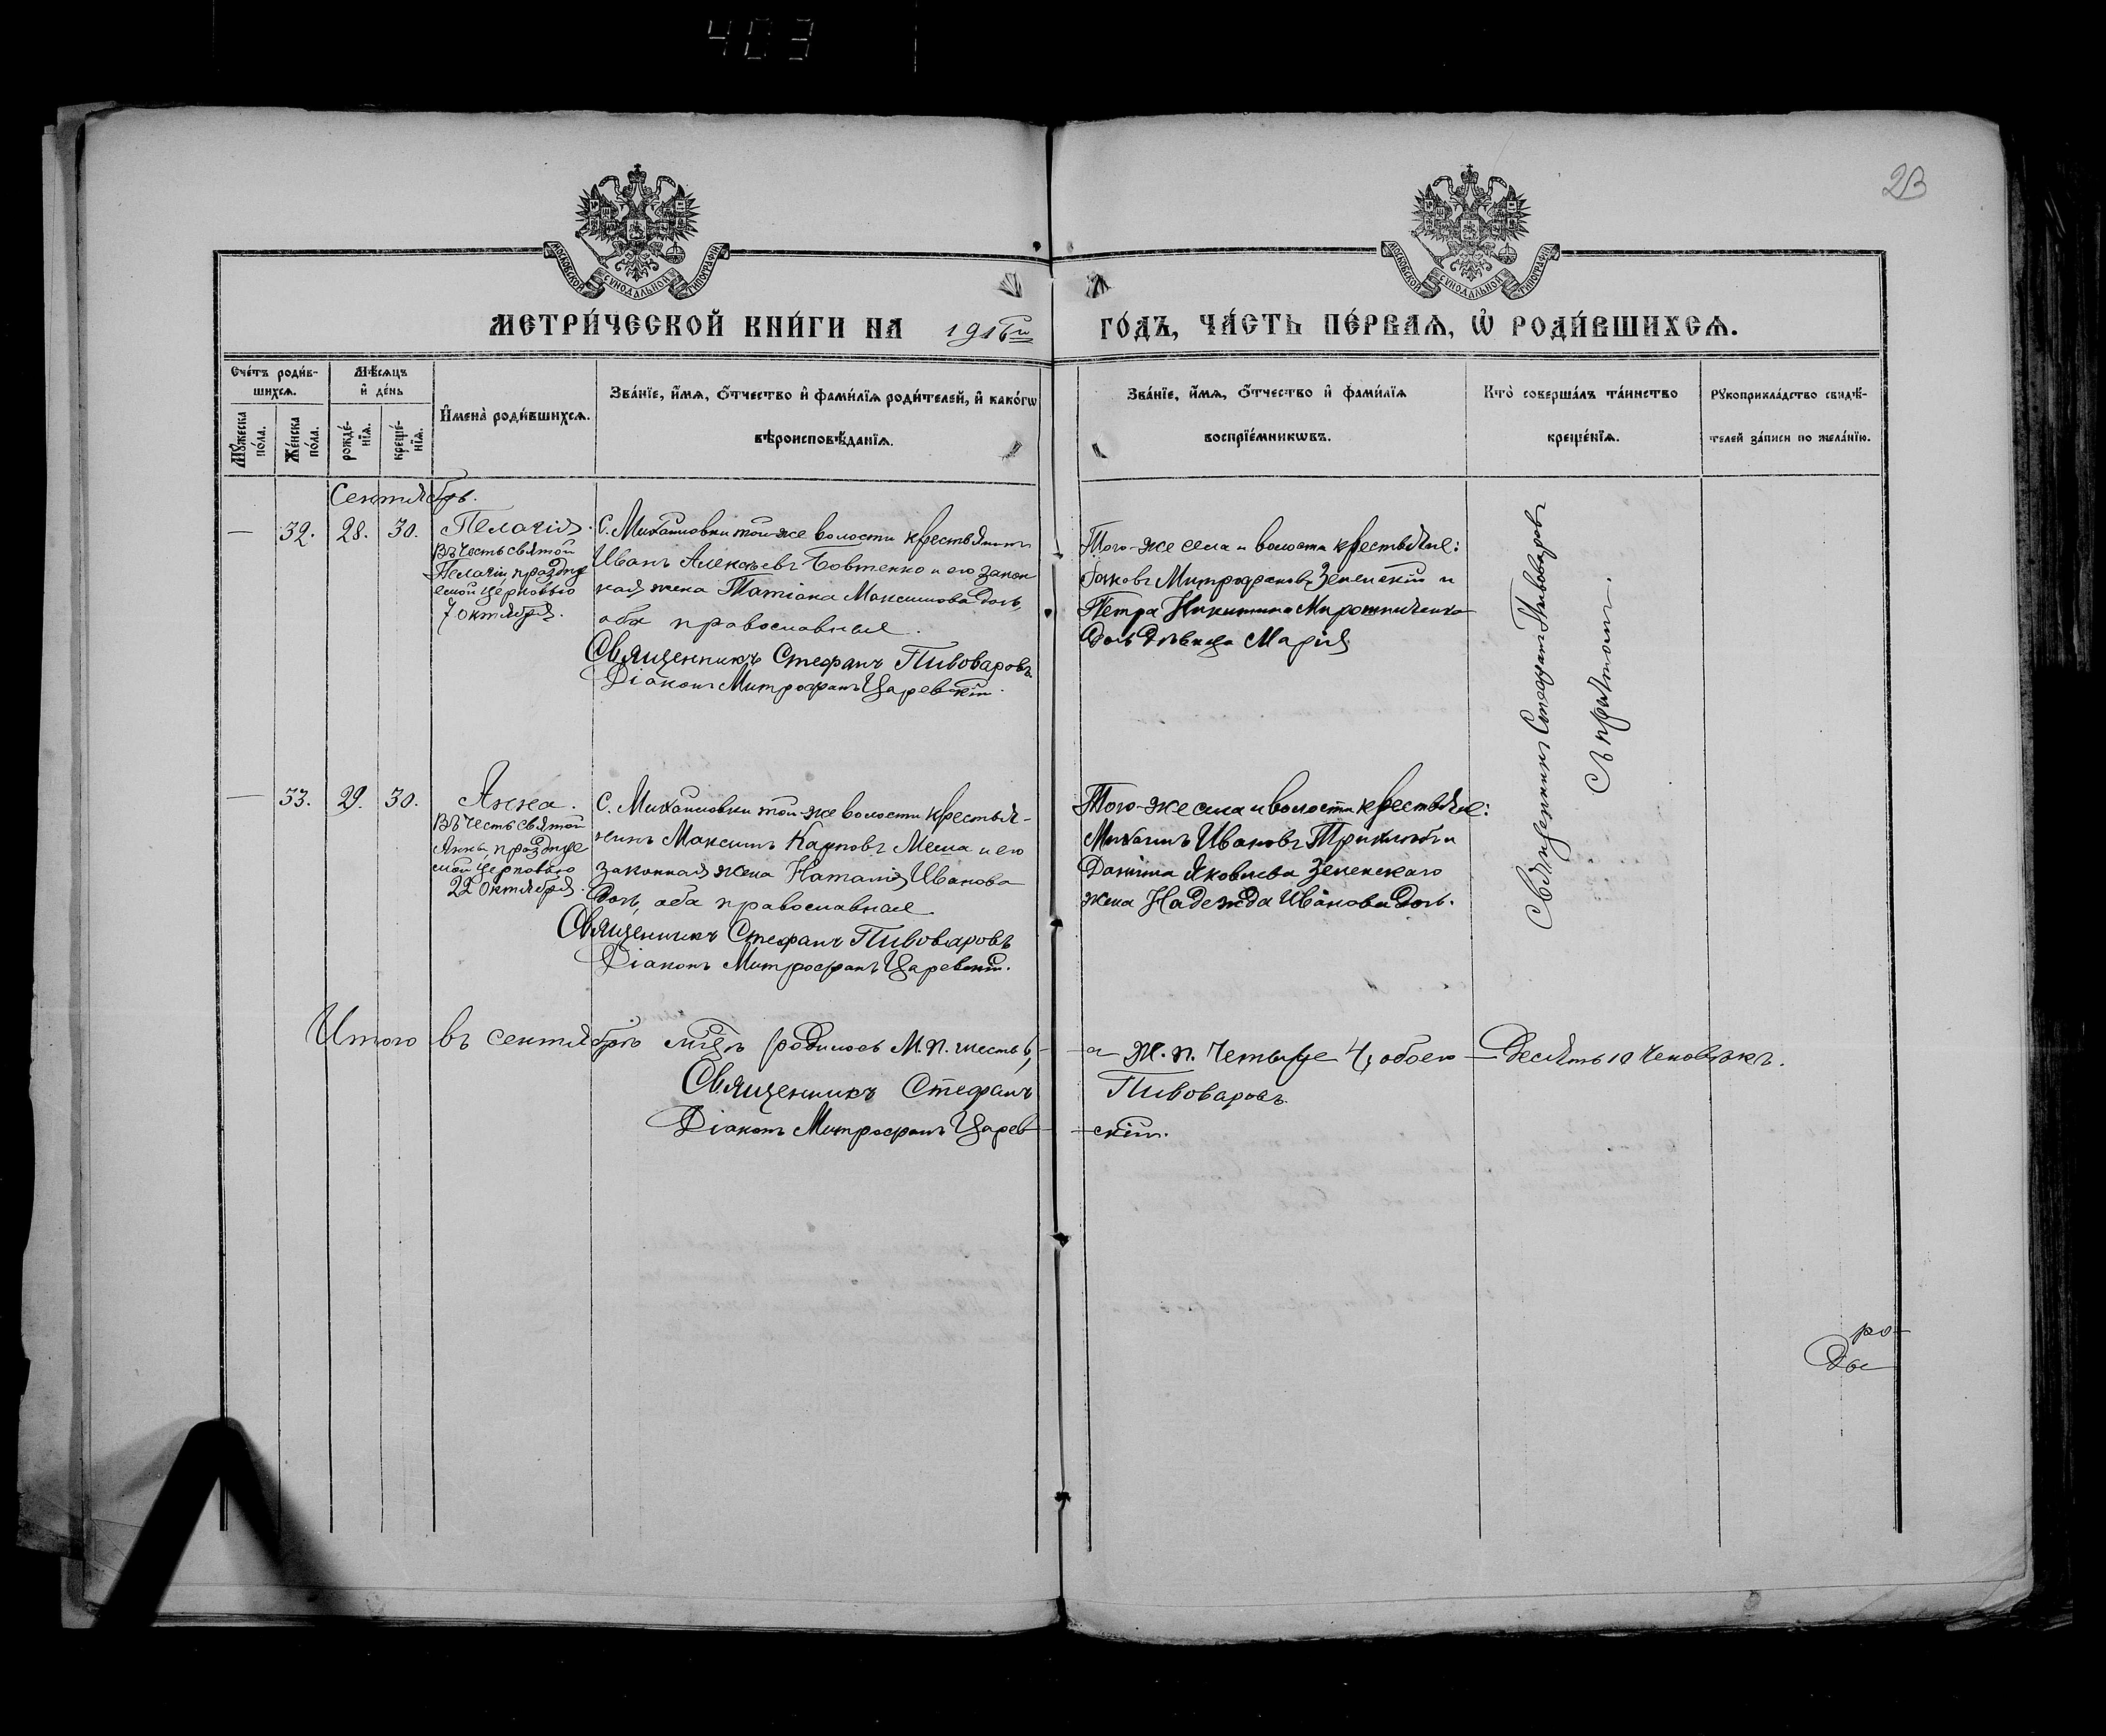 403
23
МОСКОВСКОЙ СѴНОДАЛЬНОЙ ТИПОГРАФІИ
МОСКОВСКОЙ СѴНОДАЛЬНОЙ ТИПОГРАФІИ
МЕТРИ́ЧЕСКОЙ КНИ́ГИ НА 1916й ГО́ДЪ, ЧА́СТЬ ПЕ́РВАѦ, Ѡ҆ РОДИ́ВШИХСѦ.
Сче́тъ роди́в-
шихсѧ.
Мѣ́сѧцъ
и҆ де́нь
Мꙋ́жеска
по́ла.
Же́нска
по́ла.
рожде́-
нїѧ.
креще́-
нїѧ.
И҆мена̀ роди́вшихсѧ.
Зва́нїе, и҆́мѧ, ѻ҆́тчество и҆ фами́лїѧ роди́телей, и҆ како́гѡ
вѣроисповѣ́данїѧ.
Зва́нїе, и҆́мѧ, ѻ҆́тчество и҆ фами́лїѧ
воспрїе́мникѡвъ.
Кто̀ соверша́лъ та́инство
креще́нїѧ.
Рꙋкоприкла́дство свидѣ́-
телей за́писи по жела́нїю.
Сентябрь.
— 32. 28. 30.
Пелагія.
Въ честь святой
Пелагіи, праздну
емой церковью
7 октября.
С. Михайловки той-же волости крестьянинъ
Иванъ Алексѣевъ Бовтенко и его закон
ная жена Татіана Максимова дочь,
оба православные.
Священникъ Стефанъ Пивоваровъ
Діаконъ Митрофанъ Царевскій.
Того-же села и волости крестьяне:
Іаковъ Митрофановъ Зеленскій и
Петра Никитина Мирошниченка
дочь дѣвица Марія
Священникъ Стефанъ Пивоваровъ
Съ причтомъ.
— 33. 29. 30.
Анна.
Въ честь святой
Анны, праздзуе
мой церковью
22 октября.
С. Михайловки той-же волости крестья-
нинъ Максимъ Карповъ Меша и его
законная жена Наталія Иванова
дочь, оба православные
Священникъ Стефанъ Пивоваровъ
Діаконъ Митрофанъ Царевскій.
Того-же села и волости крестьяне:
Михаилъ Ивановъ и
Даніила Яковлева Зеленскаго
жена Надежда Иванова дочь.
Итого въ сентябрѣ мцѣ родилось М. п. шесть 6, а Ж. п. четыре 4, обоего — Десять 10 человѣкъ.
Священникъ Стефанъ Пивоваровъ
Діаконъ Митрофанъ Царев-скій.
ро-
ды